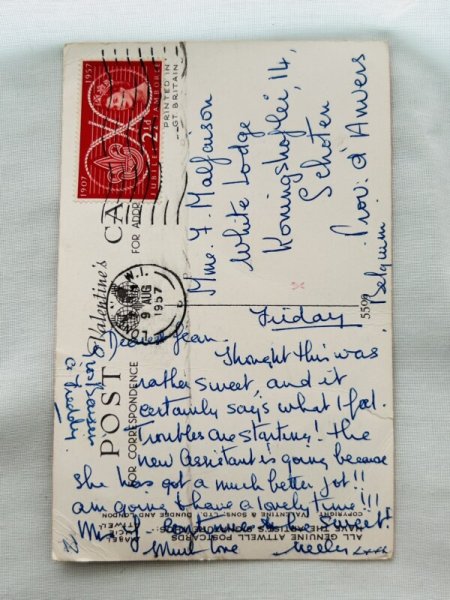 1907
1957
JUBILEE JAMBOREE
2½d
PRINTED IN
GT. BRITAIN
W.1.
9 AUG
1957
Valentine's
POST CA
FOR CORRESPONDENCE
FOR ADDR
Mme. F. Malfaison
White Lodge
Koningshoflei, 14,
Schoten
Prov. d'Anvers
Belgium
5509
Friday
Dearest Jean.
Thought this was
rather sweet, and it
certainly says what I feel.
Troubles are starting! the
new Assistant is going because
she has got a much better job!! I
am going to have a lovely time!!!
to be sweet!
Much love
& Freddy
ALL GENUINE ATTWELL POSTCARDS
COPYRIGHT
VALENTINE & SONS, LTD., DUNDEE AND LONDON
MABEL
LUCIE
ATTWELL